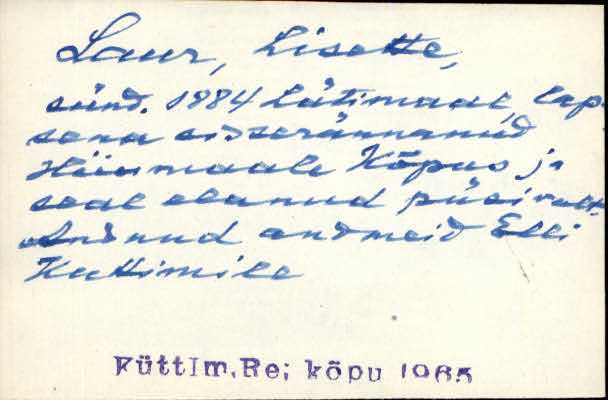 Laur, Lisette,
sünd. 1884 Lätimaal, lap-
sena sisserännanud
Hiiumaale Kõpus ja
seal elanud püsivalt.
Andnud andmeid Elli
Kuttimile
FüttIm,Re; kõpu 1965